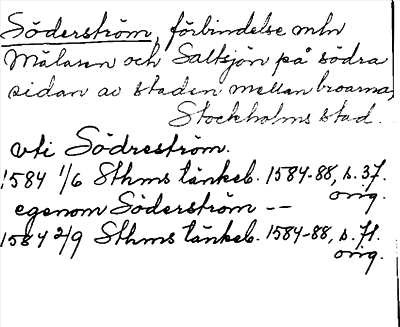 Söderström, förbindelse mln
Mälaren och Saltsjön på södra
sidan av staden mellan broarna,
Stockholms stad.
vti Södreström.
1584 1/6 Sthms tänkeb. 1584-88, s. 37.
orig.
egenom Söderström --
1584 2/9 Sthms tänkeb. 1584-88, s. 71.
orig.